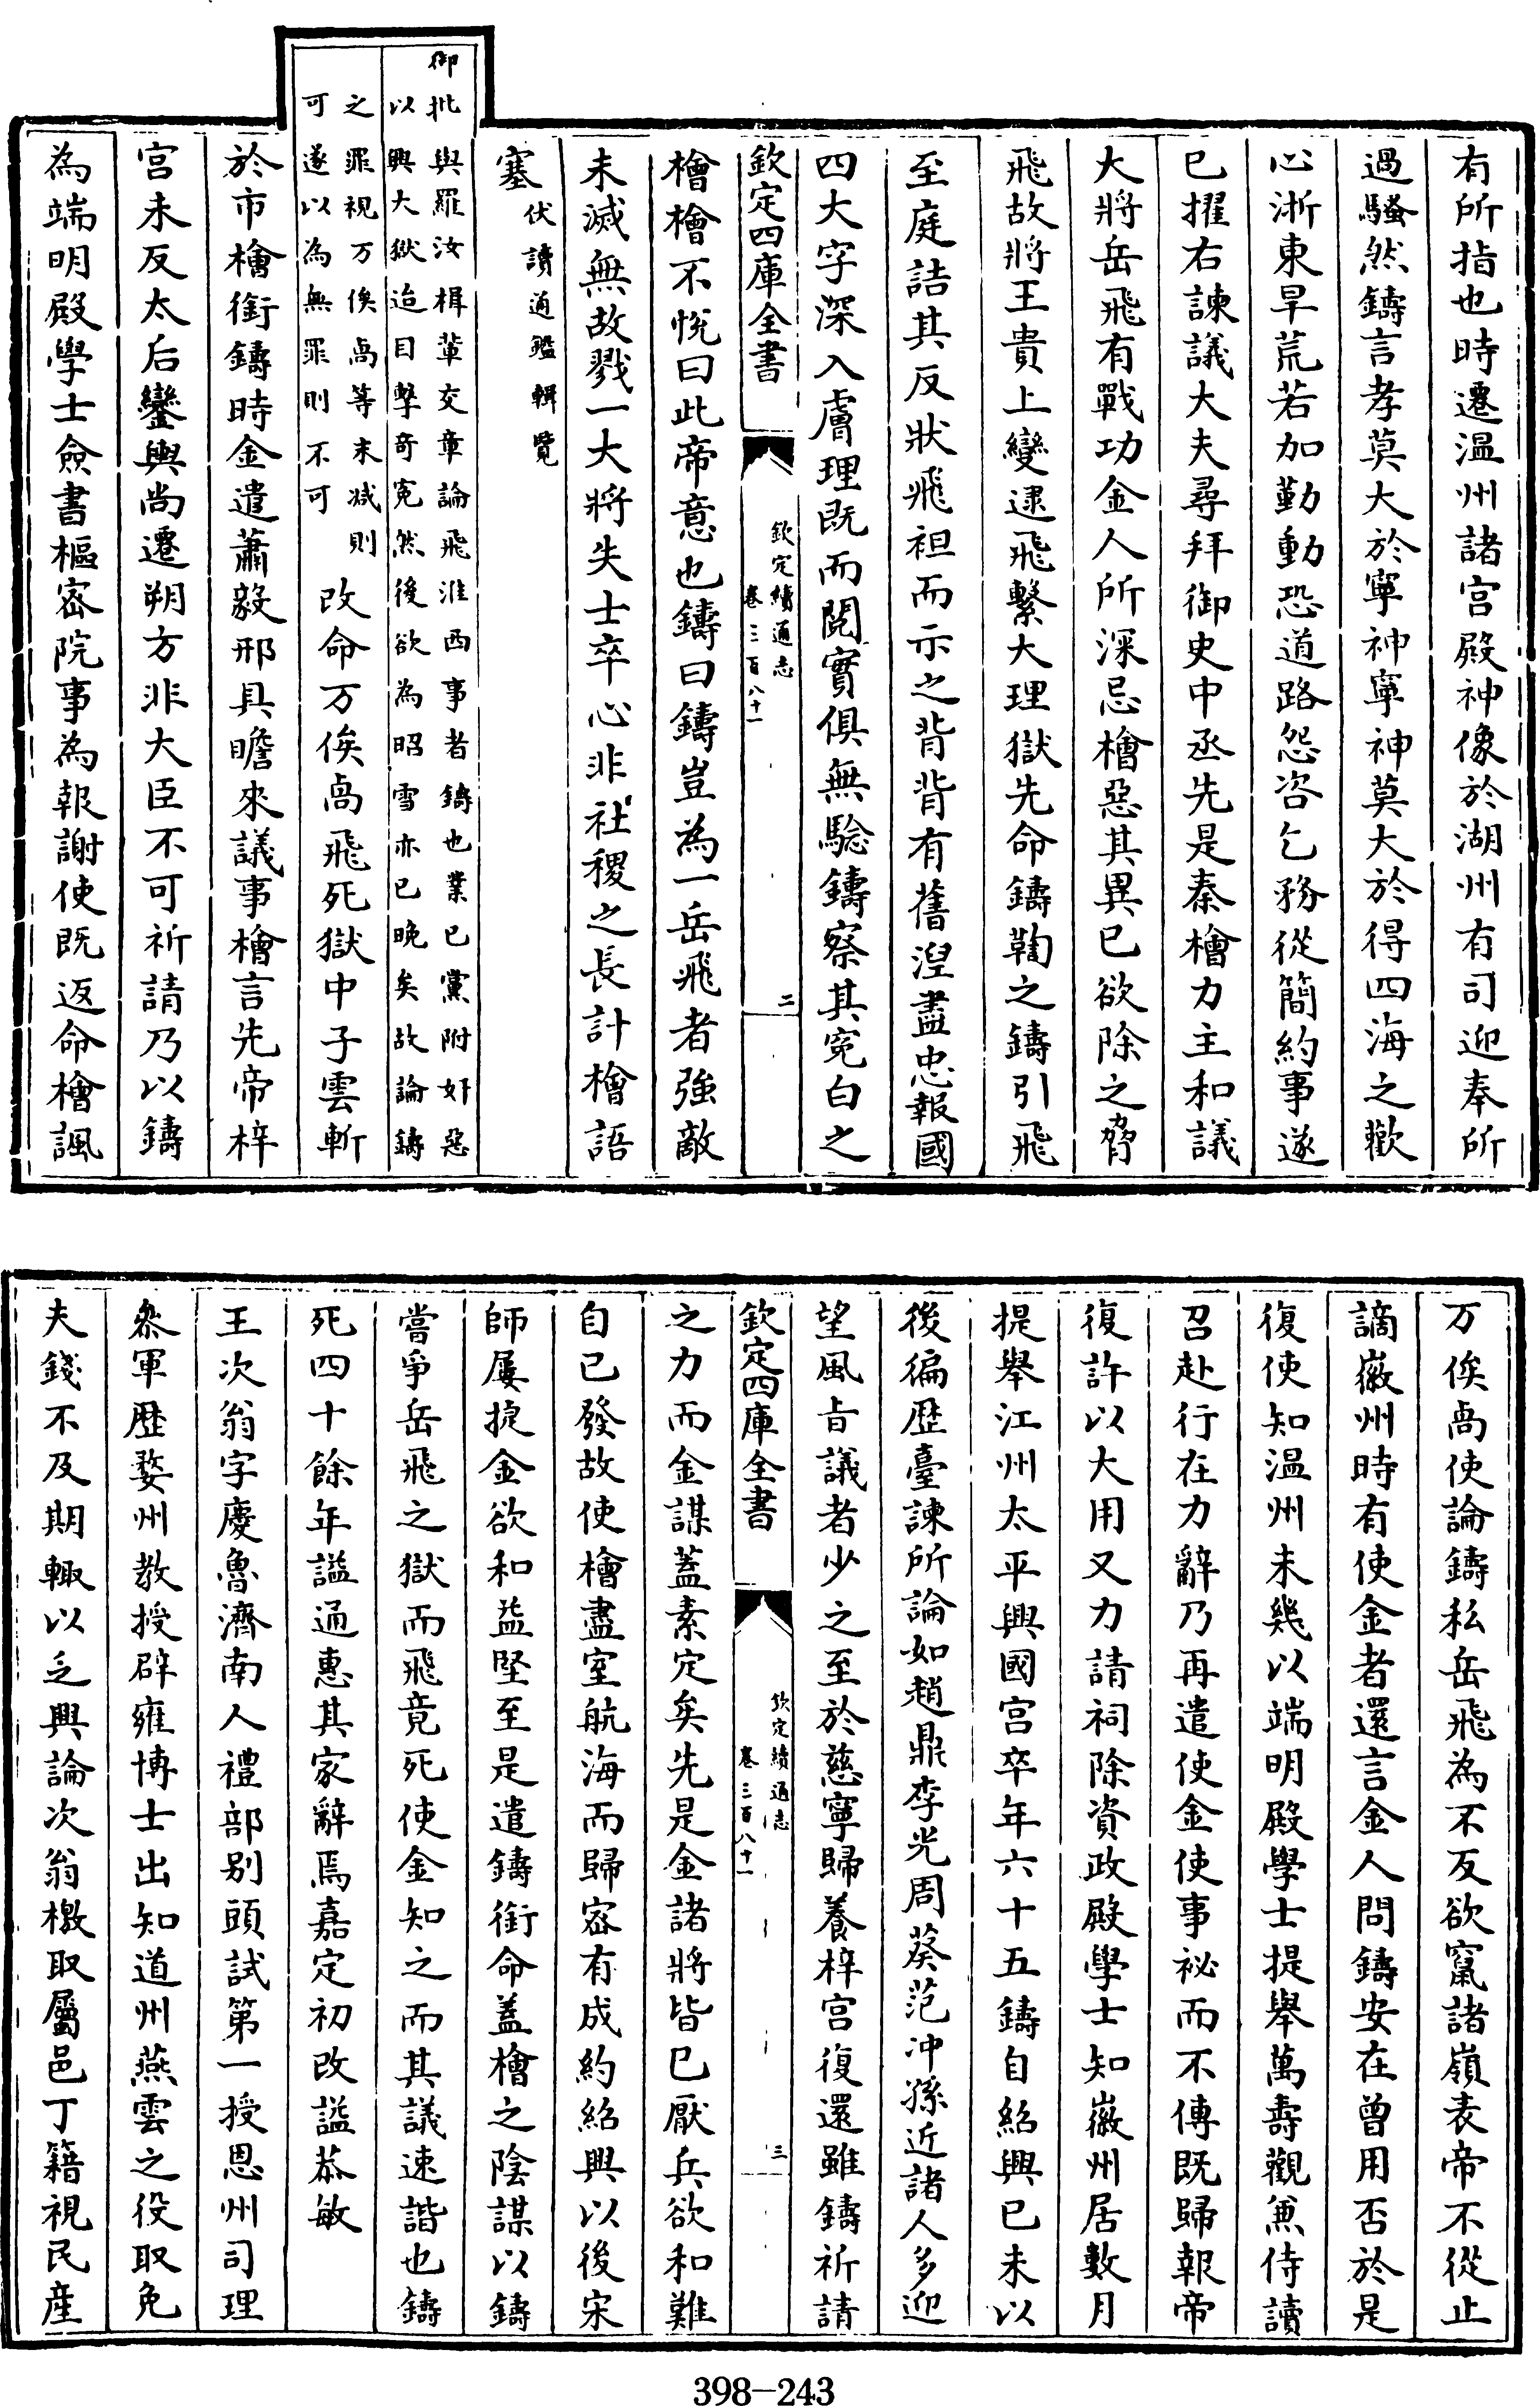 有所指也時遷温州諸宫殿神像於湖州有司迎奉所
過騷然鑄言孝莫大於寧神寧神莫大於得四海之歡
心浙東旱荒若加勤動恐道路怨咨乞務從簡約事遂
已擢右諫議大夫尋拜御史中丞先是秦檜力主和議
大將岳飛有戰功金人所深忌檜惡其異己欲除之脅
飛故將王貴上變逮飛繫大理獄先命鑄鞫之鑄引飛
至庭詰其反狀飛袒而示之背背有舊涅盡忠報國
四大字深入膚理既而閱實俱無驗鑄察其寃白之
欽定四庫全書
欽定續通志
卷三百八十一
二
檜檜不悅曰此帝意也鑄曰鑄豈為一岳飛者強敵
未滅無故戮一大將失士卒心非社稷之長計檜語
塞
伏讀通鑑輯覽
御批與羅汝楫輩交章論飛淮西事者鑄也業已黨附奸惡
以興大獄迨目擊奇寃然後欲為昭雪亦已晚矣故論鑄
之罪視万俟卨等末減則
可遂以為無罪則不可
改命万俟卨飛死獄中子雲斬
於市檜銜鑄時金遣蕭毅邢具瞻來議事檜言先帝梓
宫未反太后鑾輿尚遷朔方非大臣不可祈請乃以鑄
為端明殿學士僉書樞密院事為報謝使既返命檜諷
万俟卨使論鑄私岳飛為不反欲竄諸嶺表帝不從止
謫徽州時有使金者還言金人問鑄安在曾用否於是
復使知温州未幾以端明殿學士提舉萬壽觀兼侍讀
召赴行在力辭乃再遣使金使事祕而不傳既歸報帝
復許以大用又力請祠除資政殿學士知徽州居數月
提舉江州太平興國宫卒年六十五鑄自紹興己未以
後徧歷臺諫所論如趙鼎李光周葵范冲孫近諸人多迎
望風旨議者少之至於慈寧歸養梓宫復還雖鑄祈請
欽定四庫全書
欽定續通志
卷三百八十一
三
之力而金謀蓋素定矣先是金諸將皆已厭兵欲和難
自已發故使檜盡室航海而歸密有成約紹興以後宋
師屢捷金欲和益堅至是遣鑄銜命蓋檜之陰謀以鑄
嘗爭岳飛之獄而飛竟死使金知之而其議速諧也鑄
死四十餘年諡通惠其家辭焉嘉定初改諡恭敏
王次翁字慶魯濟南人禮部别頭試第一授恩州司理
叅軍歷婺州教授辟雍博士出知道州燕雲之役取免
夫錢不及期輒以乏興論次翁檄取屬邑丁籍視民産
398—243